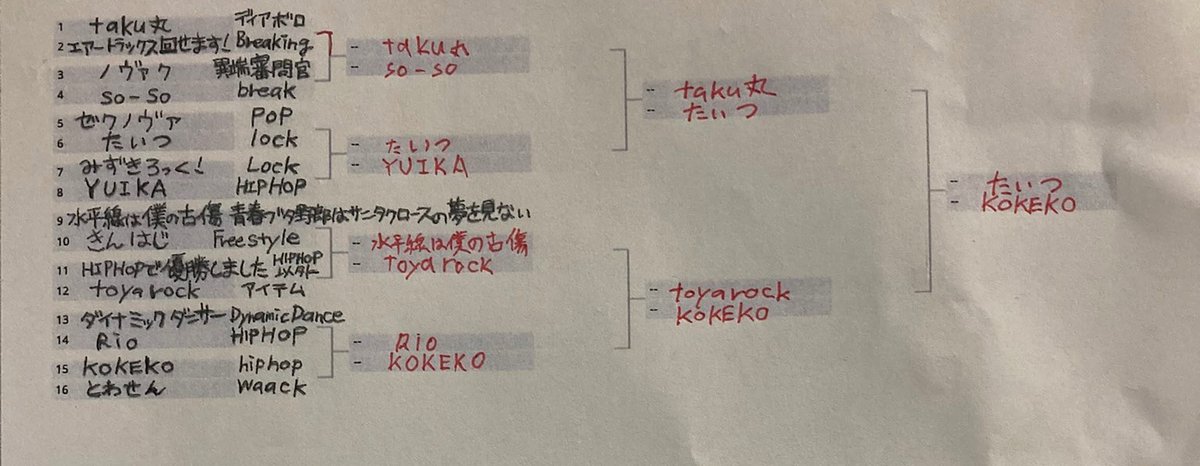 1 taku丸 ディアボロ
2 エアートラックス回せます! Breaking
3 ノヴァク 異端審問官
4 so-so break
5 ゼクノヴァ POP
6 たいつ lock
7 みずきろっく! Lock
8 YUIKA HIPHOP
9 水平線は僕の古傷 青春ブタ野郎はサンタクロースの夢を見ない
10 きんはじ Freestyle
11 HIPHOPで優勝しました HIPHOP以外
12 toyarock アイテム
13 ダイナミックダンサー DynamicDance
14 Rio HIPHOP
15 KOKEKO hiphop
16 とわせん waack
- taku丸
- so-so
- たいつ
- YUIKA
- 水平線は僕の古傷
- toyarock
- Rio
- KOKEKO
- taku丸
- たいつ
- toyarock
- KOKEKO
- たいつ
- KOKEKO